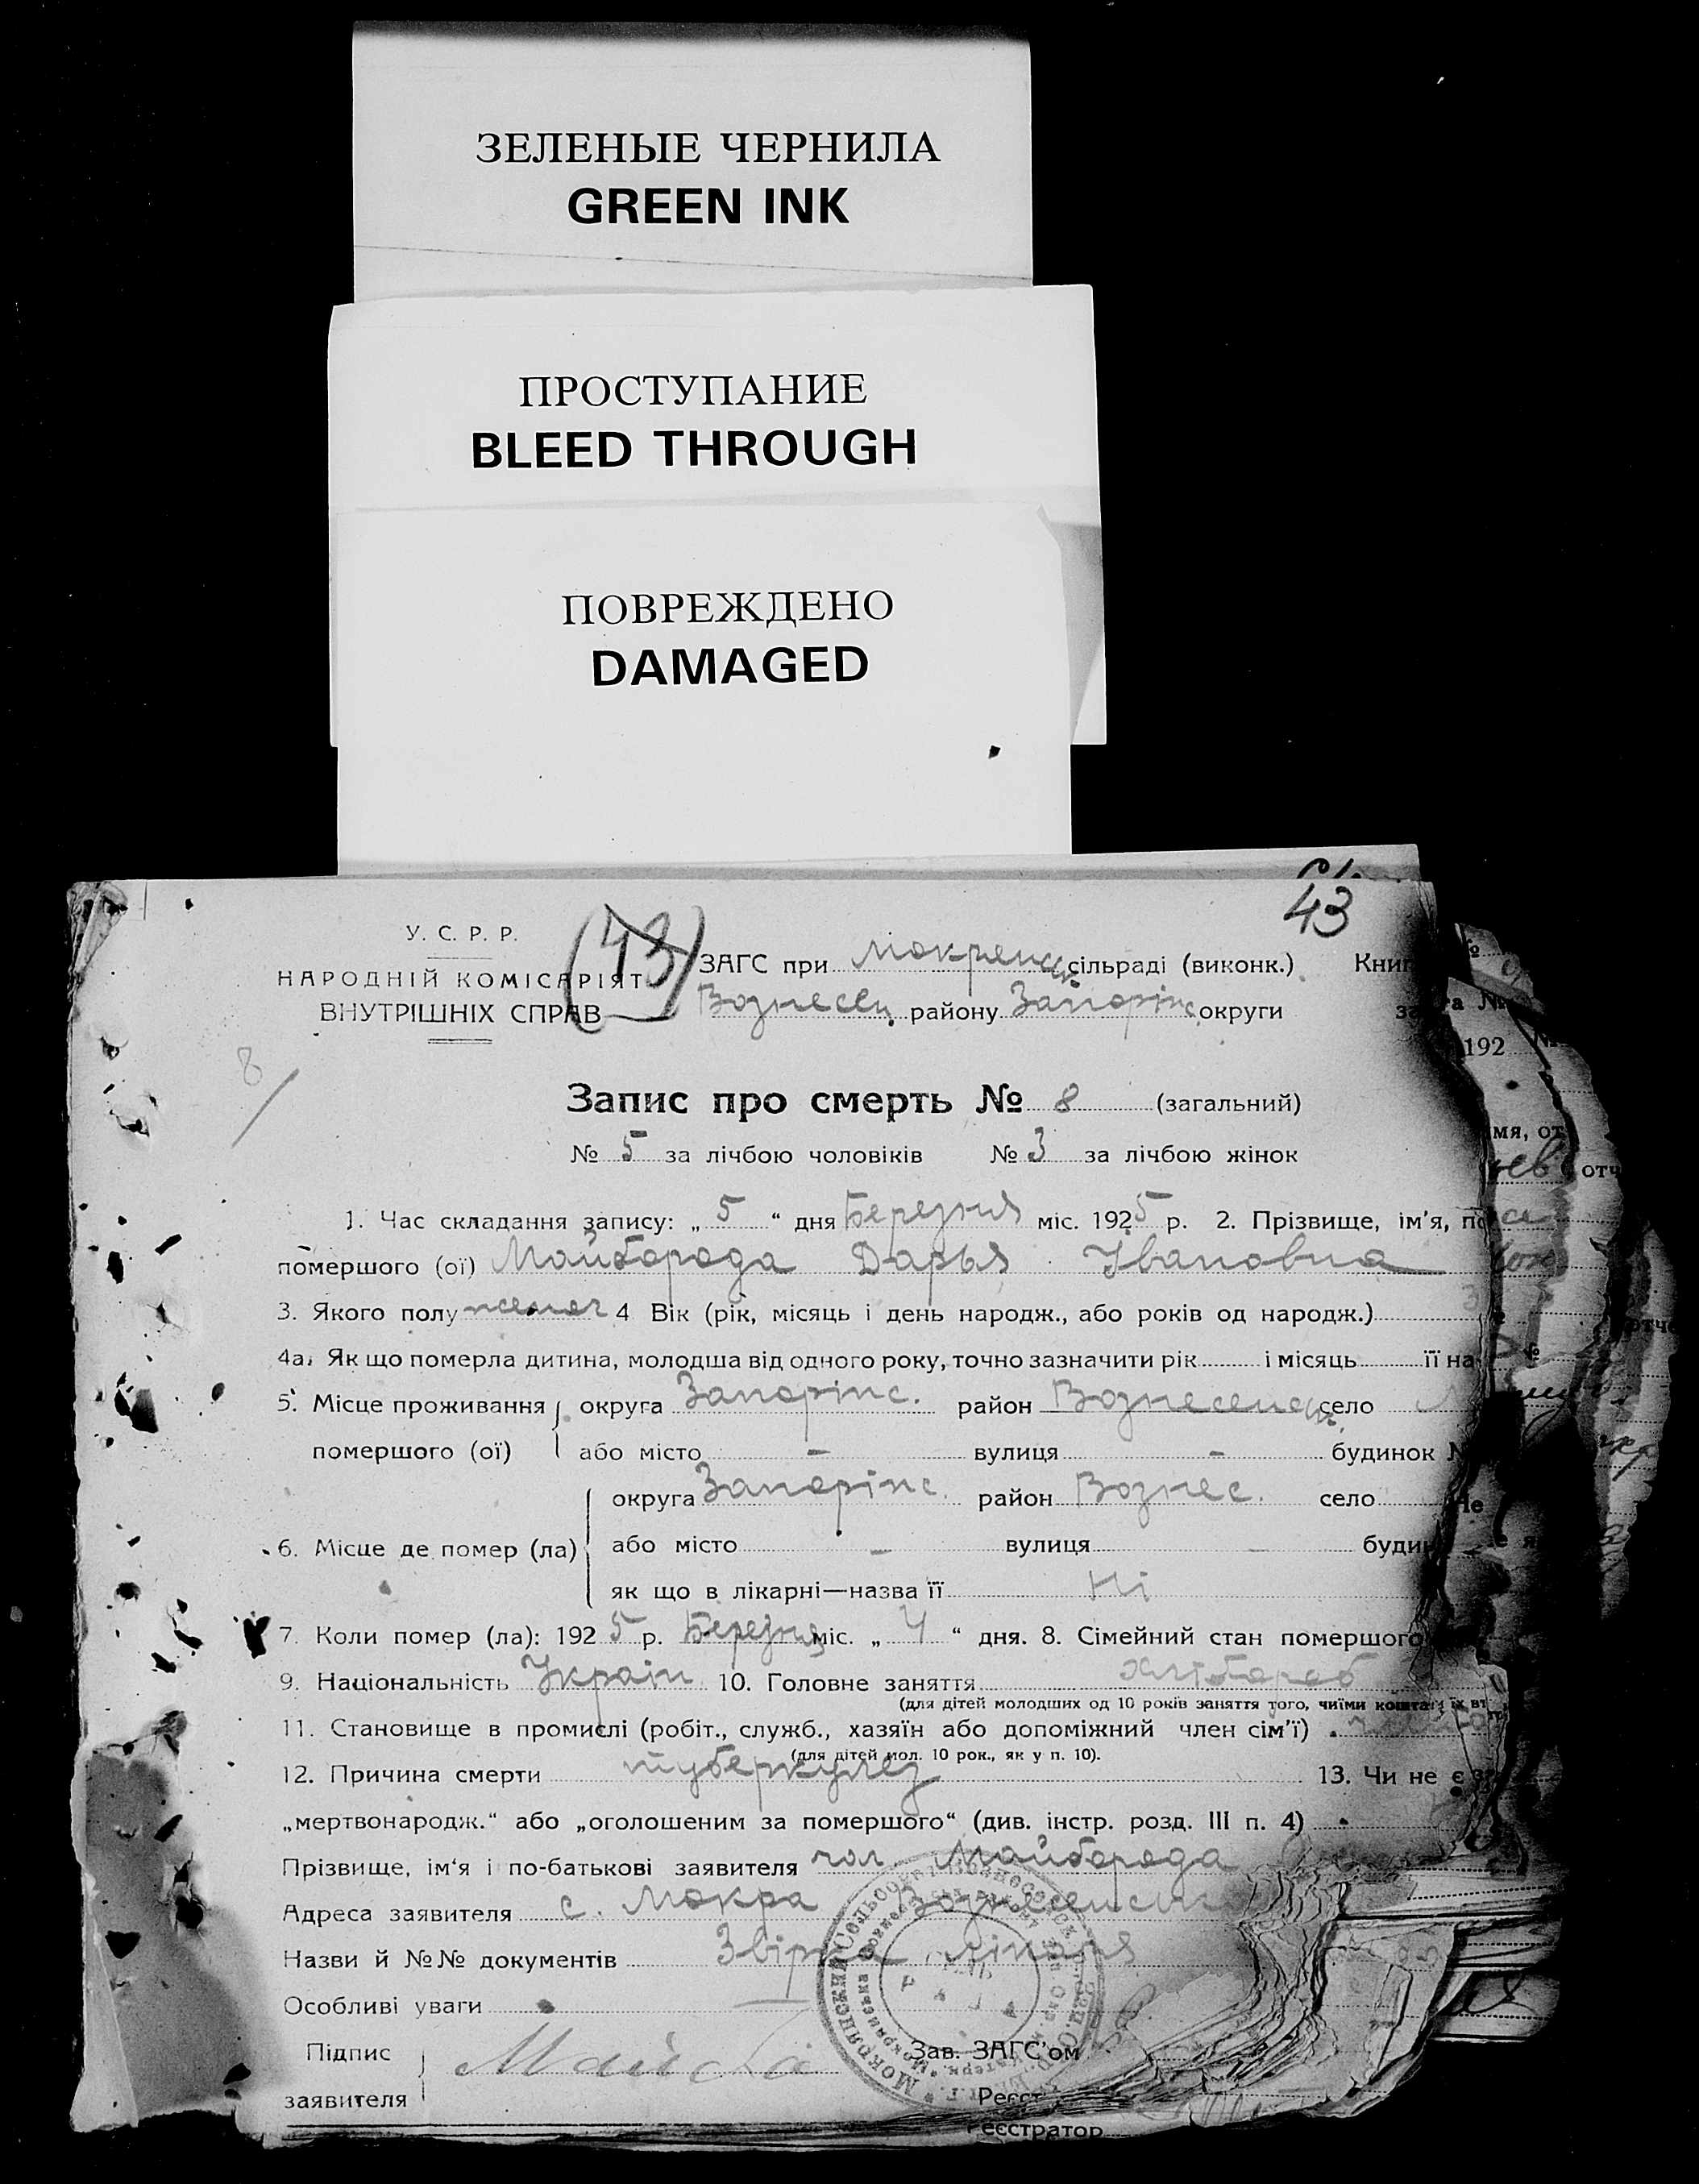 ЗЕЛЕНЫЕ ЧЕРНИЛА
GREEN INK
ПРОСТУПАНИЕ
BLEED THROUGH
ПОВРЕЖДЕНО
DAMAGED
43
У. С. Р. Р.
НАРОДНІЙ КОМІСАРІЯТ
ВНУТРІШНІХ СПРАВ
(43)
ЗАГС при Мокрянськ. сільраді (виконк.) Книг
Вознесен. району Запоріж. округи
192
8
Запис про смерть № 8 (загальний)
№ 5 за лічбою чоловіків № 3 за лічбою жінок
1. Час складання запису: „ 5 “ дня Березня міс. 1925 р. 2. Прізвище, ім'я, по
помершого (ої) Майборода Дарья Івановна
3. Якого полу жіноч 4 Вік (рік, місяць і день народж., або років од народж.)
4а. Як що померла дитина, молодша від одного року, точно зазначити рік і місяць її на
5. Місце проживання округа Запоріж. район Вознесенськ. село
помершого (ої) або місто – вулиця – будинок №
округа Запоріж. район Вознес. село
6. Місце де помер (ла) або місто – вулиця – будин
як що в лікарні—назва її Ні
7. Коли помер (ла): 1925 р. Березня міс. „ 4 “ дня. 8. Сімейний стан помершого
9. Національність Україн. 10. Головне заняття хлібороб
(для дітей молодших од 10 років заняття того, чиїми коштами їх
11. Становище в промислі (робіт., служб., хазяїн або допоміжний член сім'ї)
(для дітей мол. 10 рок., як у п. 10).
12. Причина смерти туберкулез 13. Чи не є
„мертвонародж.“ або „оголошеним за помершого“ (див. інстр. розд. III п. 4)
Прізвище, ім'я і по-батькові заявителя чол. Майборода
Адреса заявителя с. Мокра Вознесенськ
Назви й №№ документів лікаря
Особливі уваги —
Підпис
заявителя
Зав. ЗАГС'ом
Реєст
Реєстратор